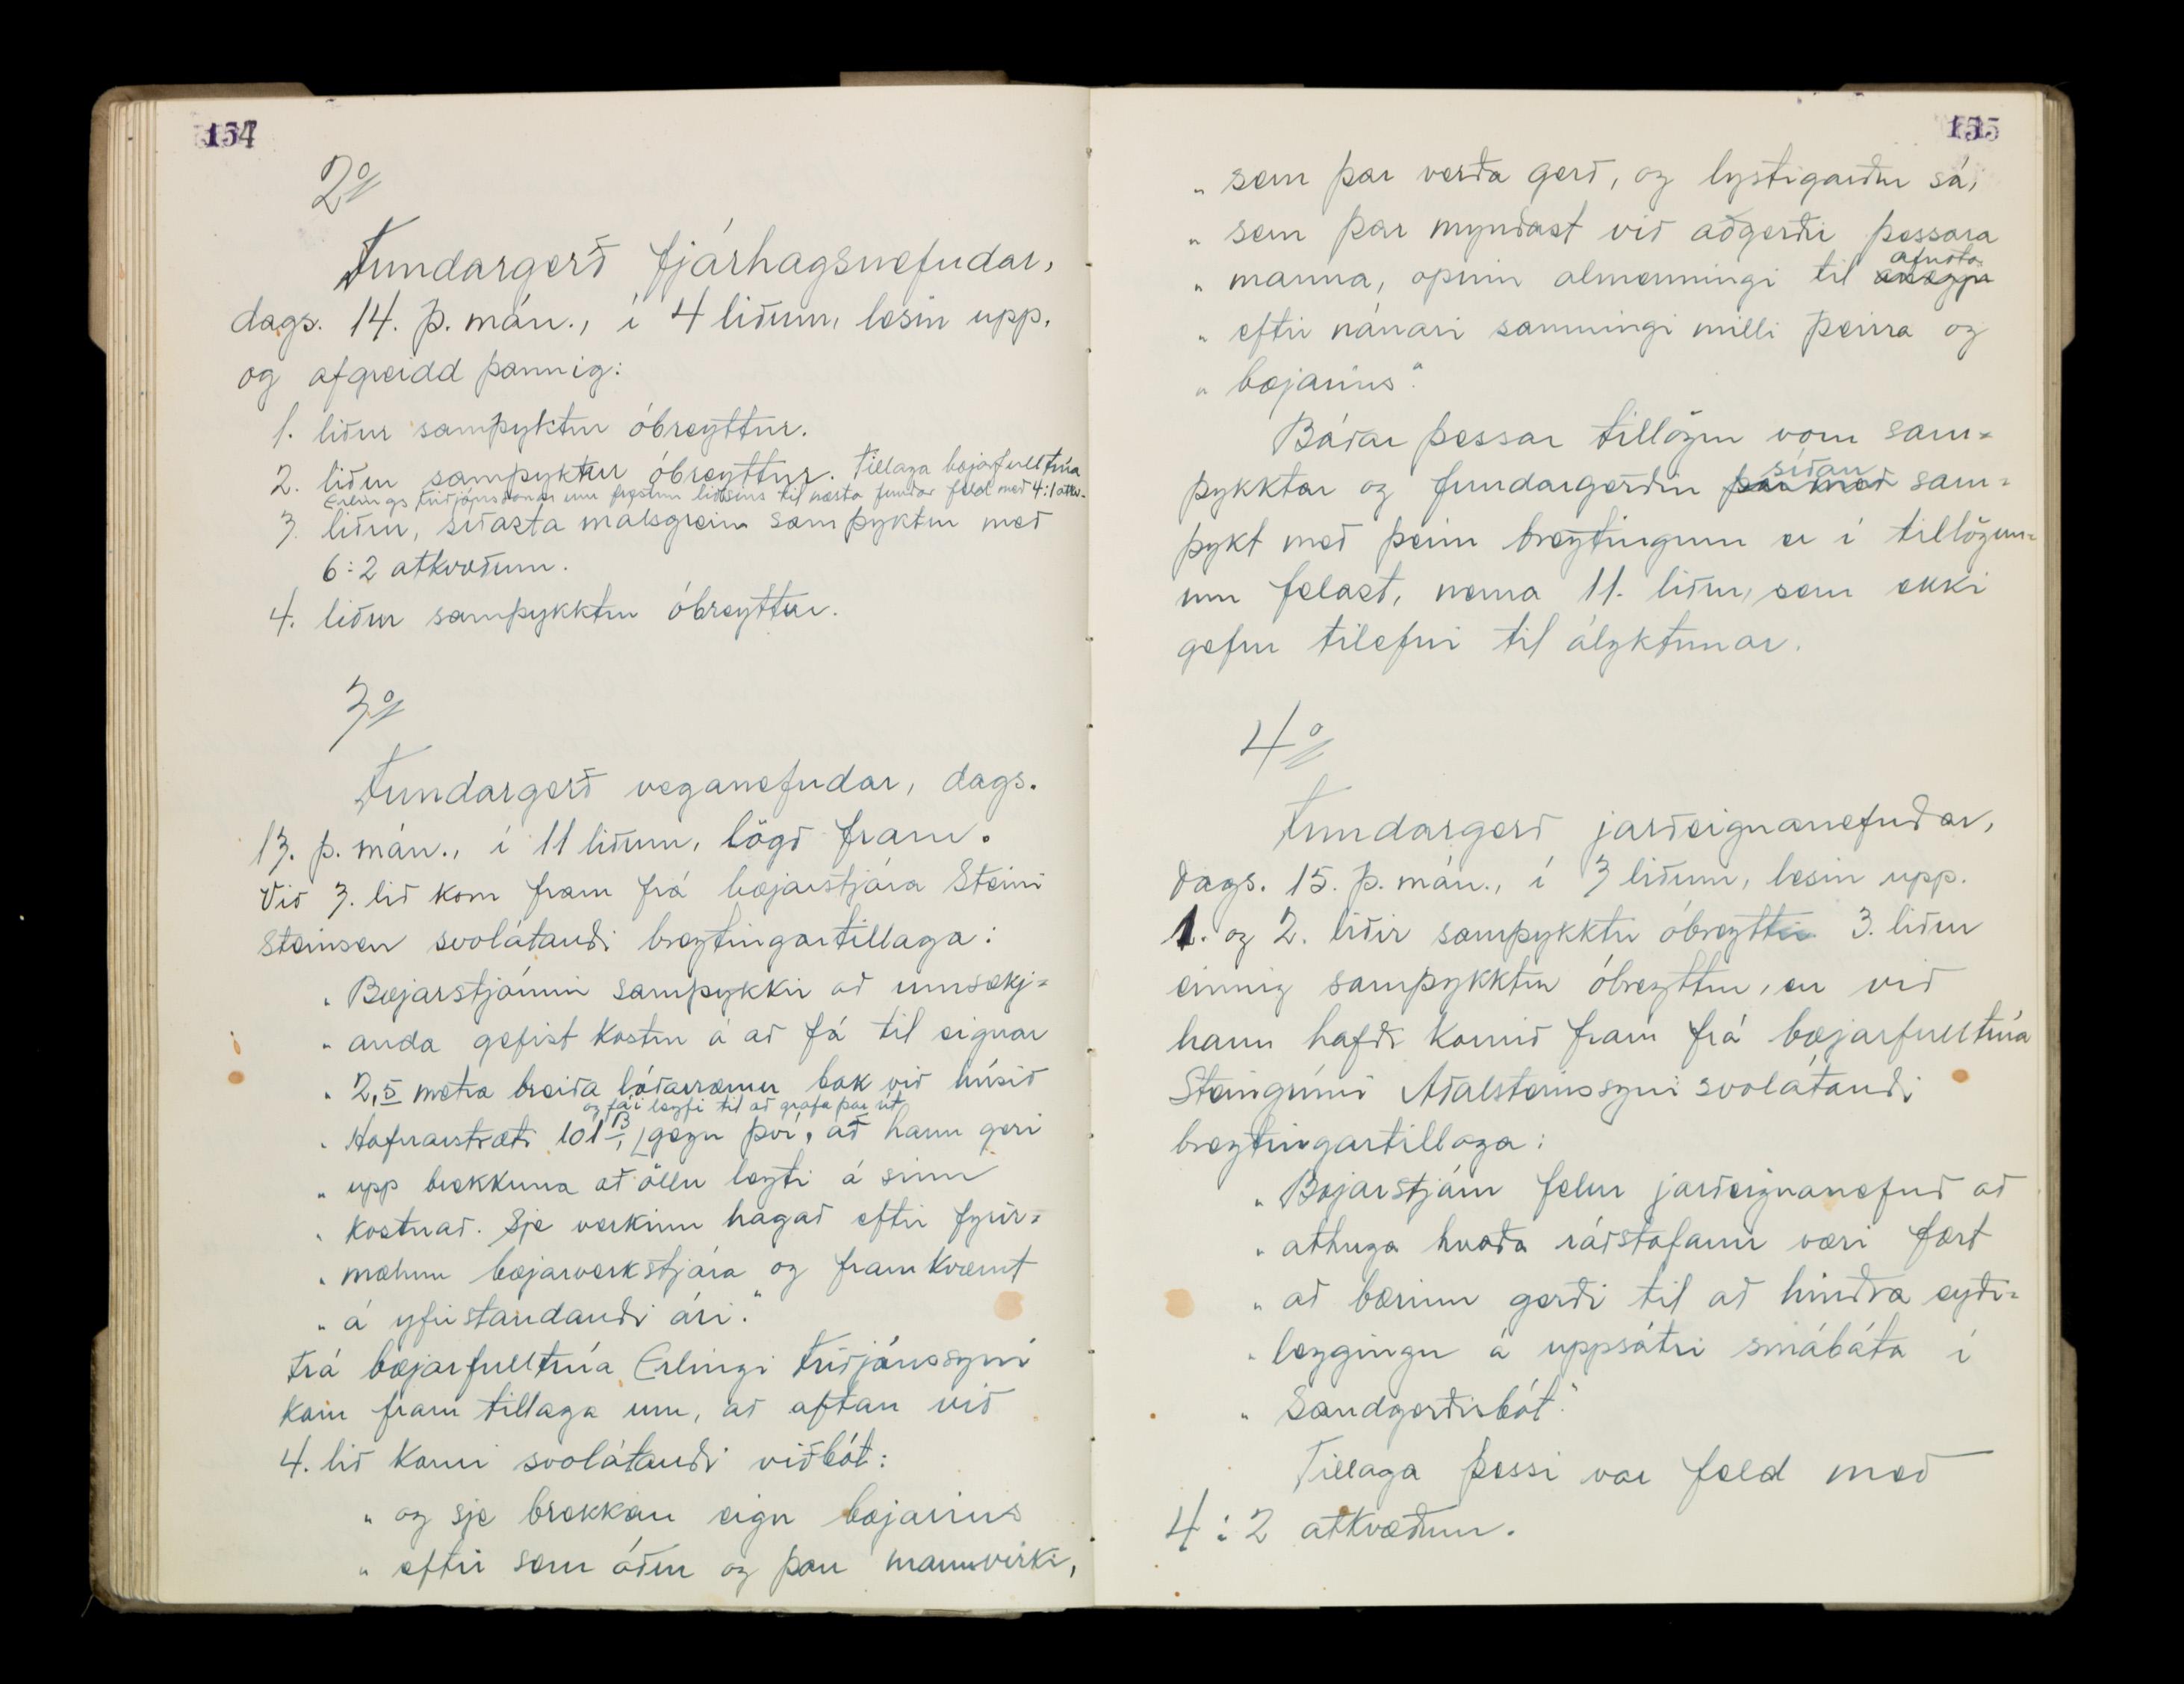 154
2º
Fundargerð fjárhagsnefndar,
dags. 14. þ. mán., í 4 liðum, lesin upp,
og afgreidd þannig:
1. liður samþyktur óbreyttur.
2. liður samþyktur óbreyttur. Tillaga bæjarfulltrúa
Erlings Friðjónssonar um frestun liðsins til næsta fundar feld með 4:1 atkv.
3. liður, síðasta málsgrein samþyktur með
6:2 atkvæðum.
4. liður samþykktur óbreyttur.
3º
Fundargerð veganefndar, dags.
13. þ. mán., í 11 liðum, lögð fram.
Við 3. lið kom fram frá bæjarstjóra Steini
Steinsen svolátandi breytingartillaga:
„ Bæjarstjórnin samþykkir að umsækj=
„ anda gefist kostur á að fá til eignar
„ 2,5 metra breiða lóðarræmu bak við húsið
og fái leyfi til að grafa þar út
„ Hafnarstræti 101 B, gegn því, að hann geri
„ upp brekkuna að öllu leyti á sinn
„ kostnað. Sje verkinu hagað eftir fyrir=
„ mælum bæjarverkstjóra og framkvæmt
„ á yfirstandandi ári."
Frá bæjarfulltrúa Erlingi Friðjónssyni
kom fram tillaga um, að aftan við
4. lið komi svolátandi viðbót:
„ og sje brekkan eign bæjarins
„ eftir sem áður og þau mannvirki,
155
„ sem þar verða gerð, og lystigarður sá,
„ sem þar myndast við aðgerðir þessara
afnota
„ manna, opinn almenningi til
„ eftir nánari samningi milli þeirra og
„ bæjarins."
Báðar þessar tillögur voru sam=
síðan
þykktar og fundargerðin þar með sam=
þykt með þeim breytingum er í tillögun=
um felast, nema 11. liður, sem ekki
gefur tilefni til ályktunar.
4º
Fundargerð jarðeignanefndar,
dags. 15. þ. mán., í 3 liðum, lesin upp.
1. og 2. liðir samþykktir óbreyttir 3. liður
einnig samþykktur óbreyttur, en við
hann hafði komið fram frá bæjarfulltrúa
Steingrími Aðalsteinssyni svolátandi
breytingartillaga:
„ Bæjarstjórn felur jarðeignanefnd að
„ athuga hvaða ráðstafanir væri fært
„ að bærinn gerði til að hindra eyði=
„ leggingu á uppsátri smábáta í
„ Sandgerðisbót."
Tillaga þessi var feld með
4:2 atkvæðum.